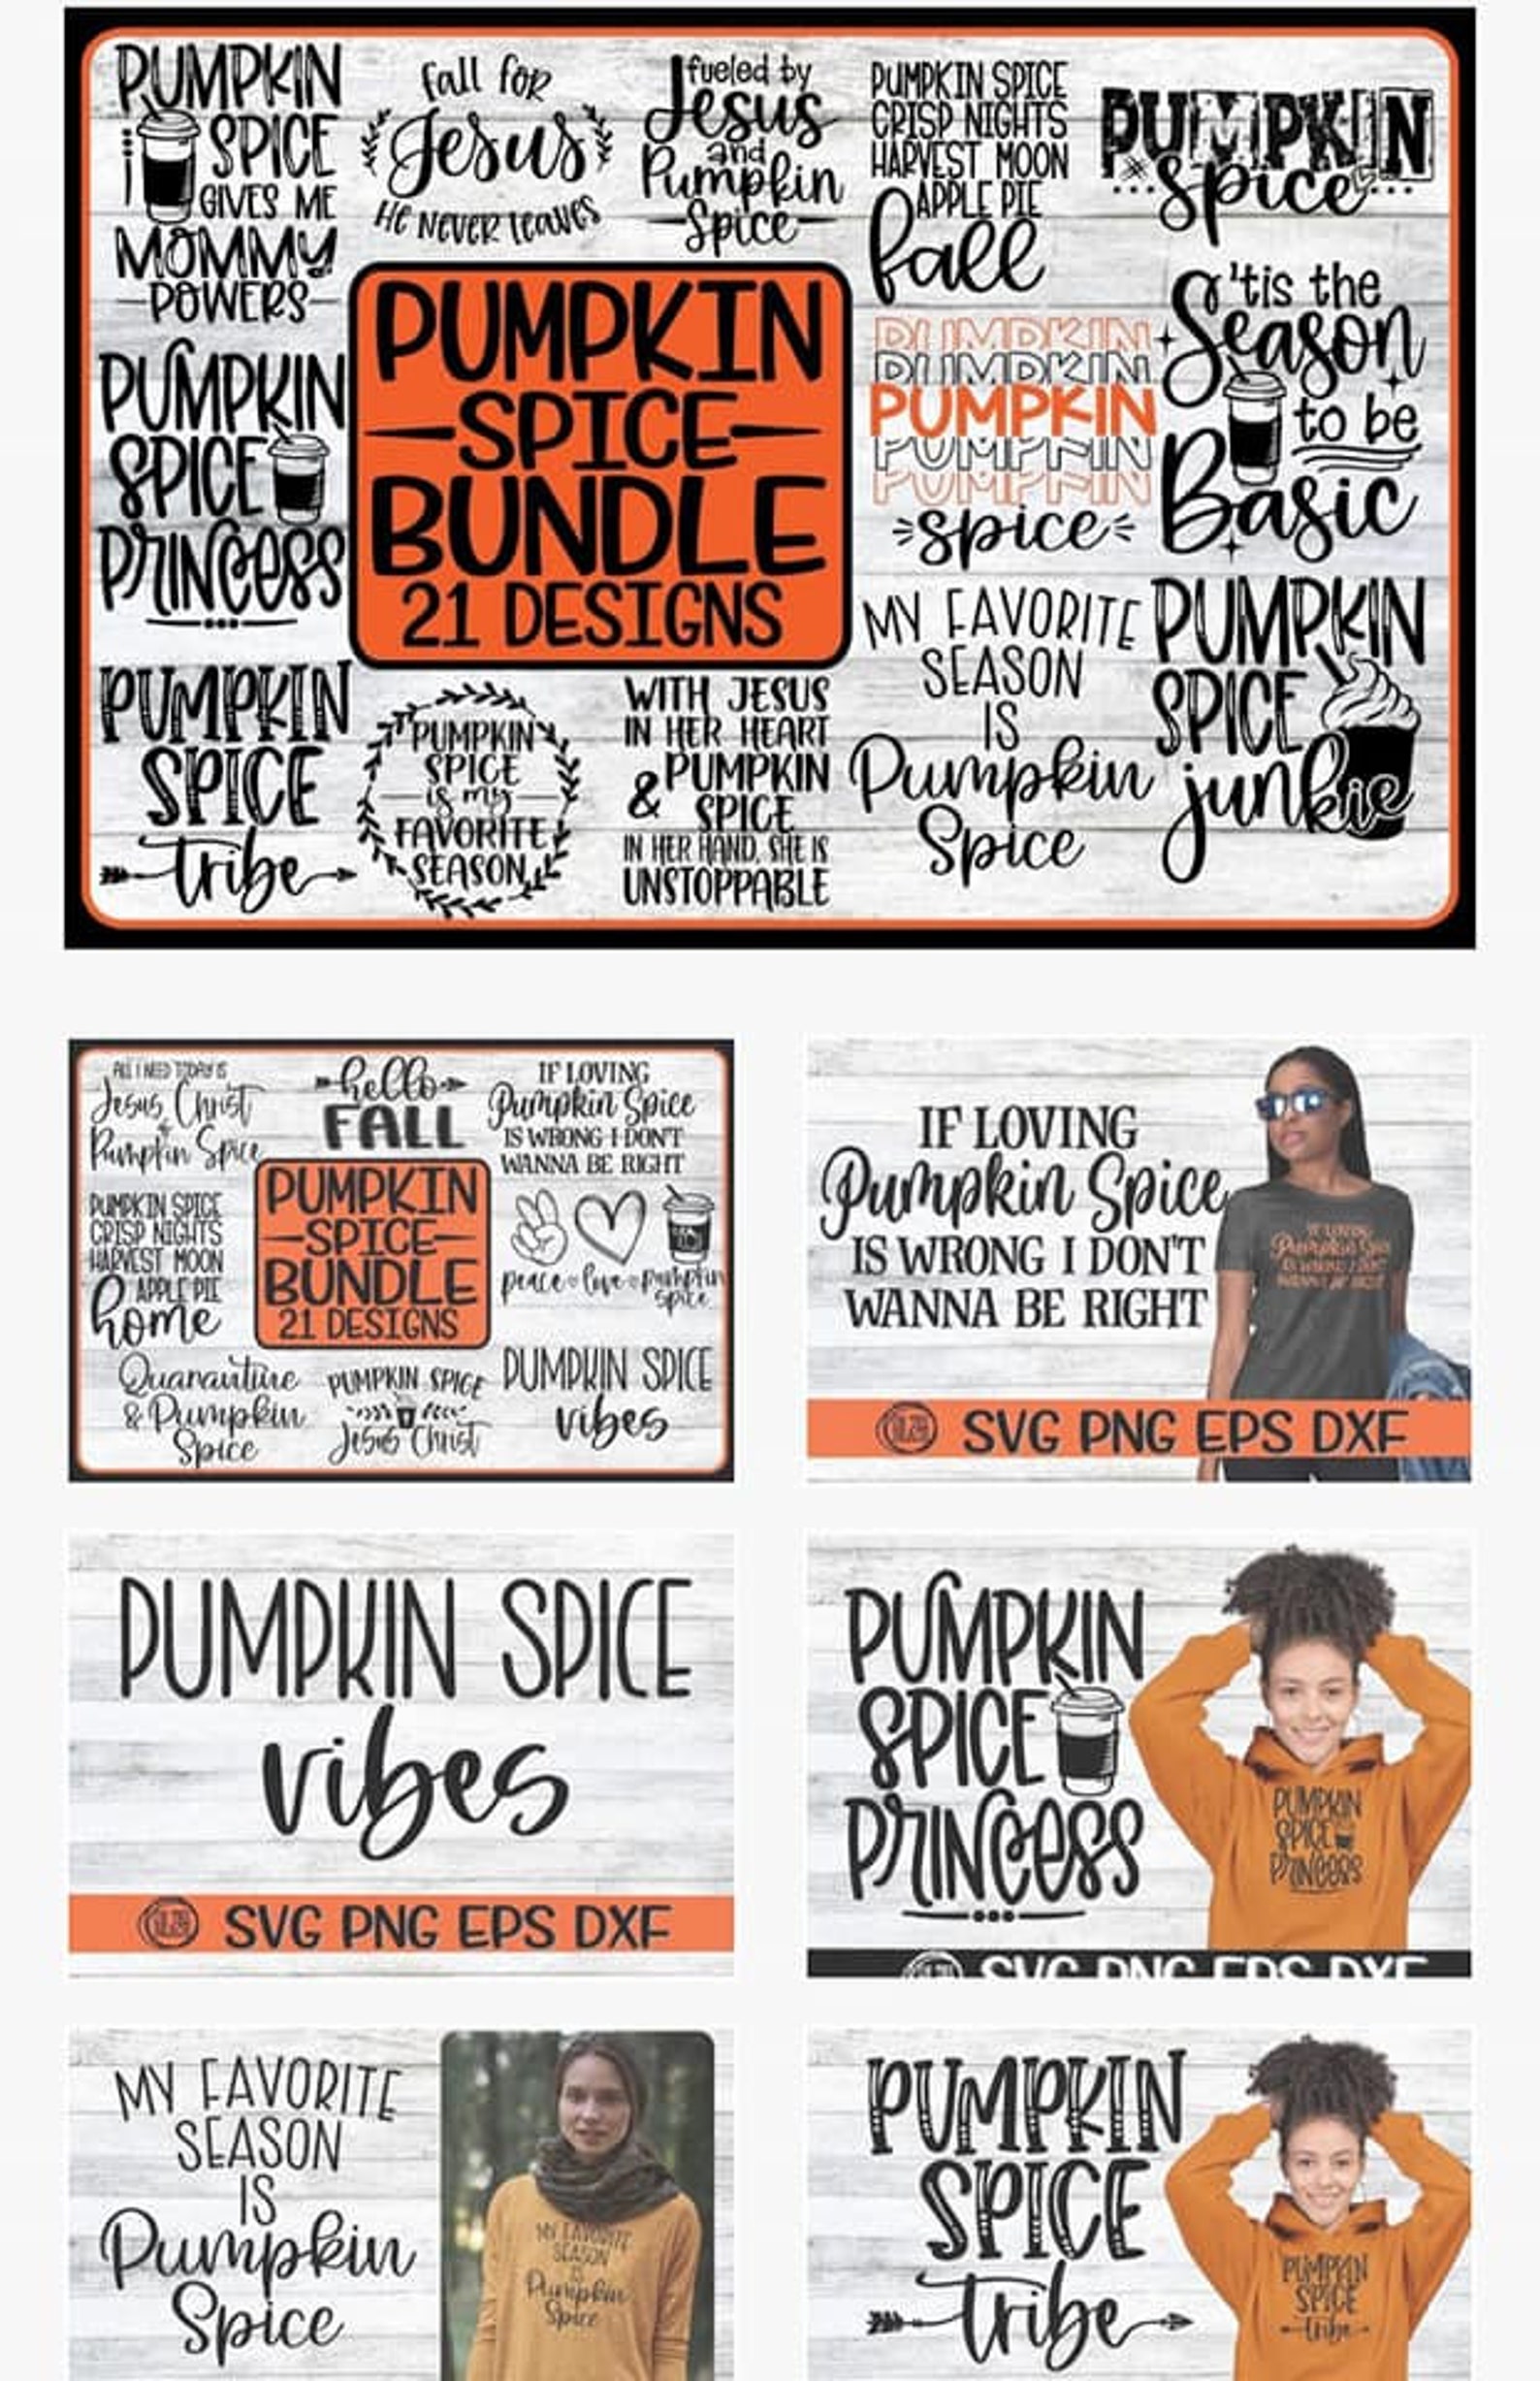 PUMPKIN
SPICE
GIVES ME
MOMMY
POWERS
fall for
Jesus
HE NEVER leaves
fueled by
Jesus
and
Pumpkin
Spice
PUMPKIN SPICE
CRISP NIGHTS
HARVEST MOON
APPLE PIE
fall
PUMPKIN
spice
PUMPKIN
SPICE
PRINCESS
PUMPKIN
SPICE
BUNDLE
21 DESIGNS
PUMPKIN
PUMPKIN
PUMPKIN
PUMPKIN
PUMPKIN
spice
'tis the
Season
to be
Basic
PUMPKIN
SPICE
tribe
PUMPKIN
SPICE
is my
FAVORITE
SEASON
WITH JESUS
IN HER HEART
& PUMPKIN
SPICE
IN HER HAND, SHE IS
UNSTOPPABLE
MY FAVORITE
SEASON
IS
Pumpkin
Spice
PUMPKIN
SPICE
junkie
ALL I NEED TODAY IS
Jesus Christ
&
Pumpkin Spice
hello
FALL
IF LOVING
Pumpkin Spice
IS WRONG I DON'T
WANNA BE RIGHT
PUMPKIN SPICE
CRISP NIGHTS
HARVEST MOON
APPLE PIE
home
PUMPKIN
SPICE
BUNDLE
21 DESIGNS
peace love pumpkin
spice
Quarantine
& Pumpkin
Spice
PUMPKIN SPICE
Jesus Christ
PUMPKIN SPICE
vibes
IF LOVING
Pumpkin Spice
IS WRONG I DON'T
WANNA BE RIGHT
IF LOVING
Pumpkin Spice
IS WRONG I DON'T
WANNA BE RIGHT
SVG PNG EPS DXF
PUMPKIN SPICE
vibes
SVG PNG EPS DXF
PUMPKIN
SPICE
PRINCESS
PUMPKIN
SPICE
PRINCESS
SVG PNG EPS DXF
MY FAVORITE
SEASON
IS
Pumpkin
Spice
MY FAVORITE
SEASON
IS
Pumpkin
Spice
PUMPKIN
SPICE
tribe
PUMPKIN
SPICE
tribe